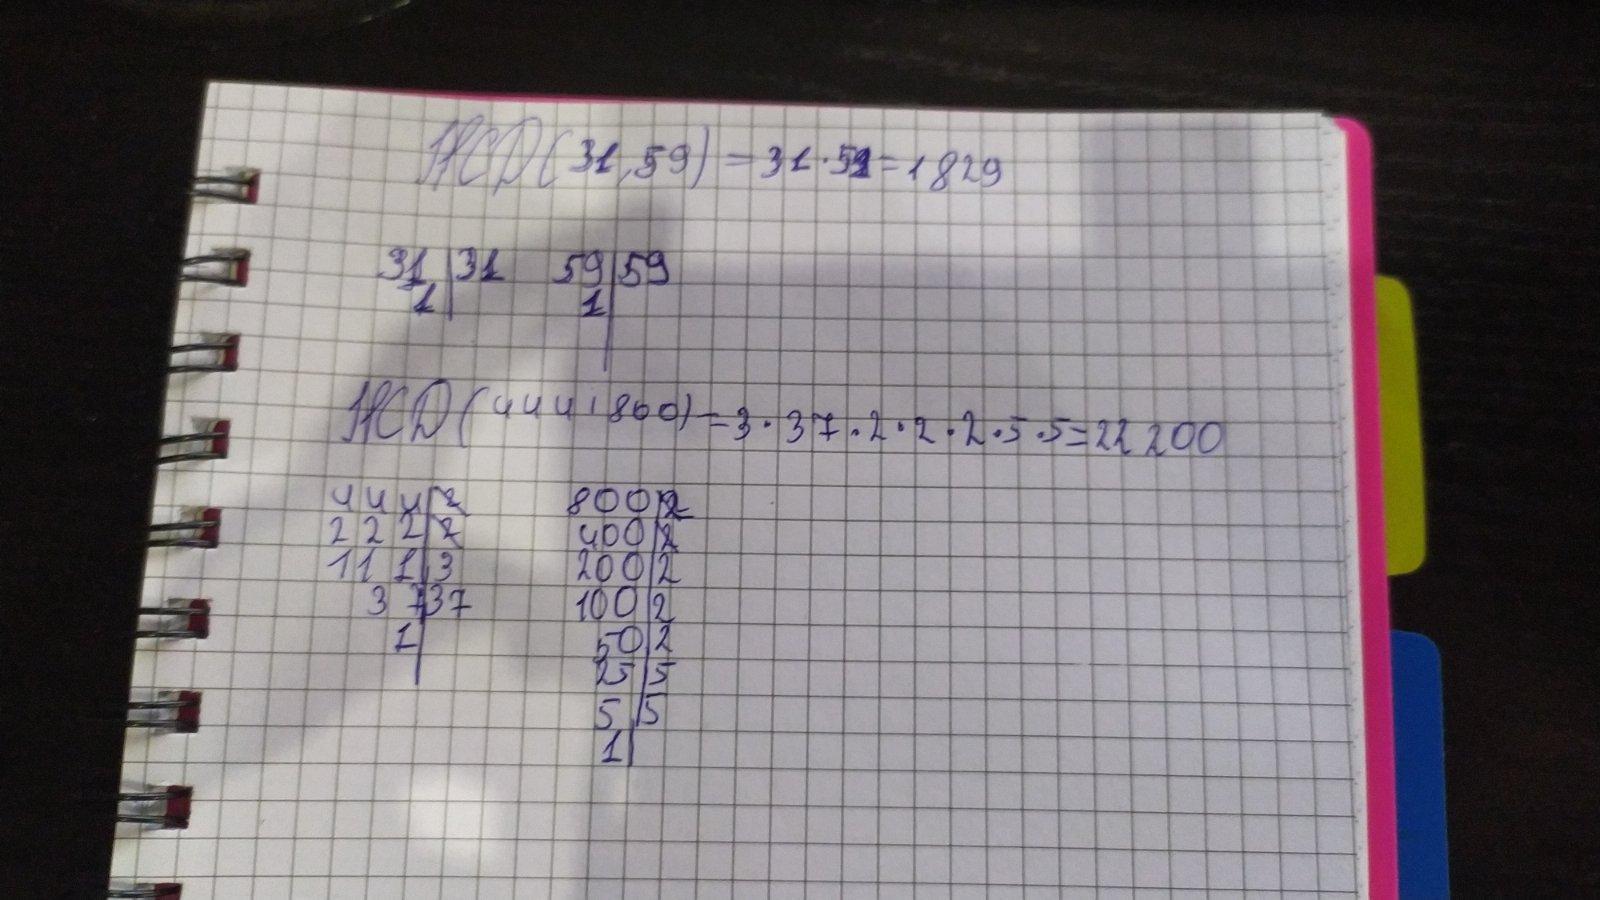 НСД(31,59)=31·59=1829
31|31 59|59
1| 1|
НСД(444,800)=3·37·2·2·2·5·5=22200
444|2 800|2
222|2 400|2
111|3 200|2
37|37 100|2
1| 50|2
25|5
5|5
1|